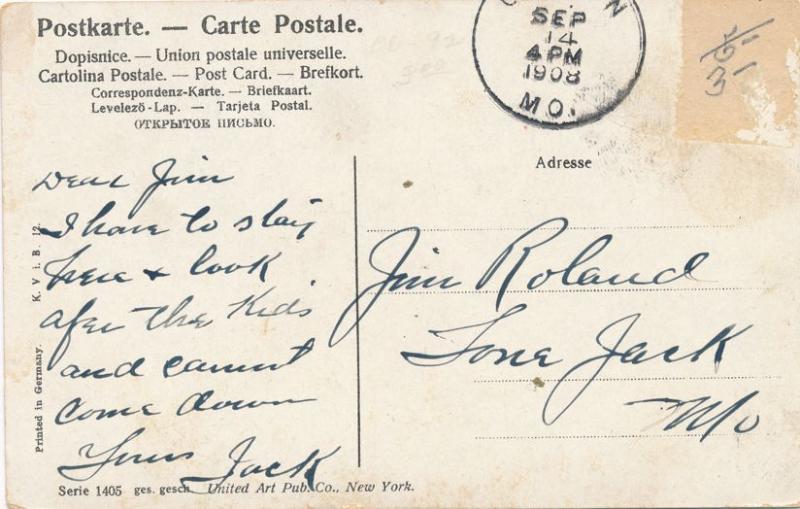 Postkarte. — Carte Postale.
Dopisnice. — Union postale universelle.
Cartolina Postale. — Post Card. — Brefkort.
Correspondenz-Karte. — Briefkaart.
Levelező-Lap. — Tarjeta Postal.
ОТКРЫТОЕ ПИСЬМО.
SEP
14
4 PM
1908
MO.
Adresse
Dear Jim
I have to stay
here + look
after the Kids
and cannot
come down
Yours Jack
Jim Roland
Lone Jack
Mo
Printed in Germany. K. V i. B. 12.
Serie 1405 ges. gesch. United Art Pub. Co., New York.